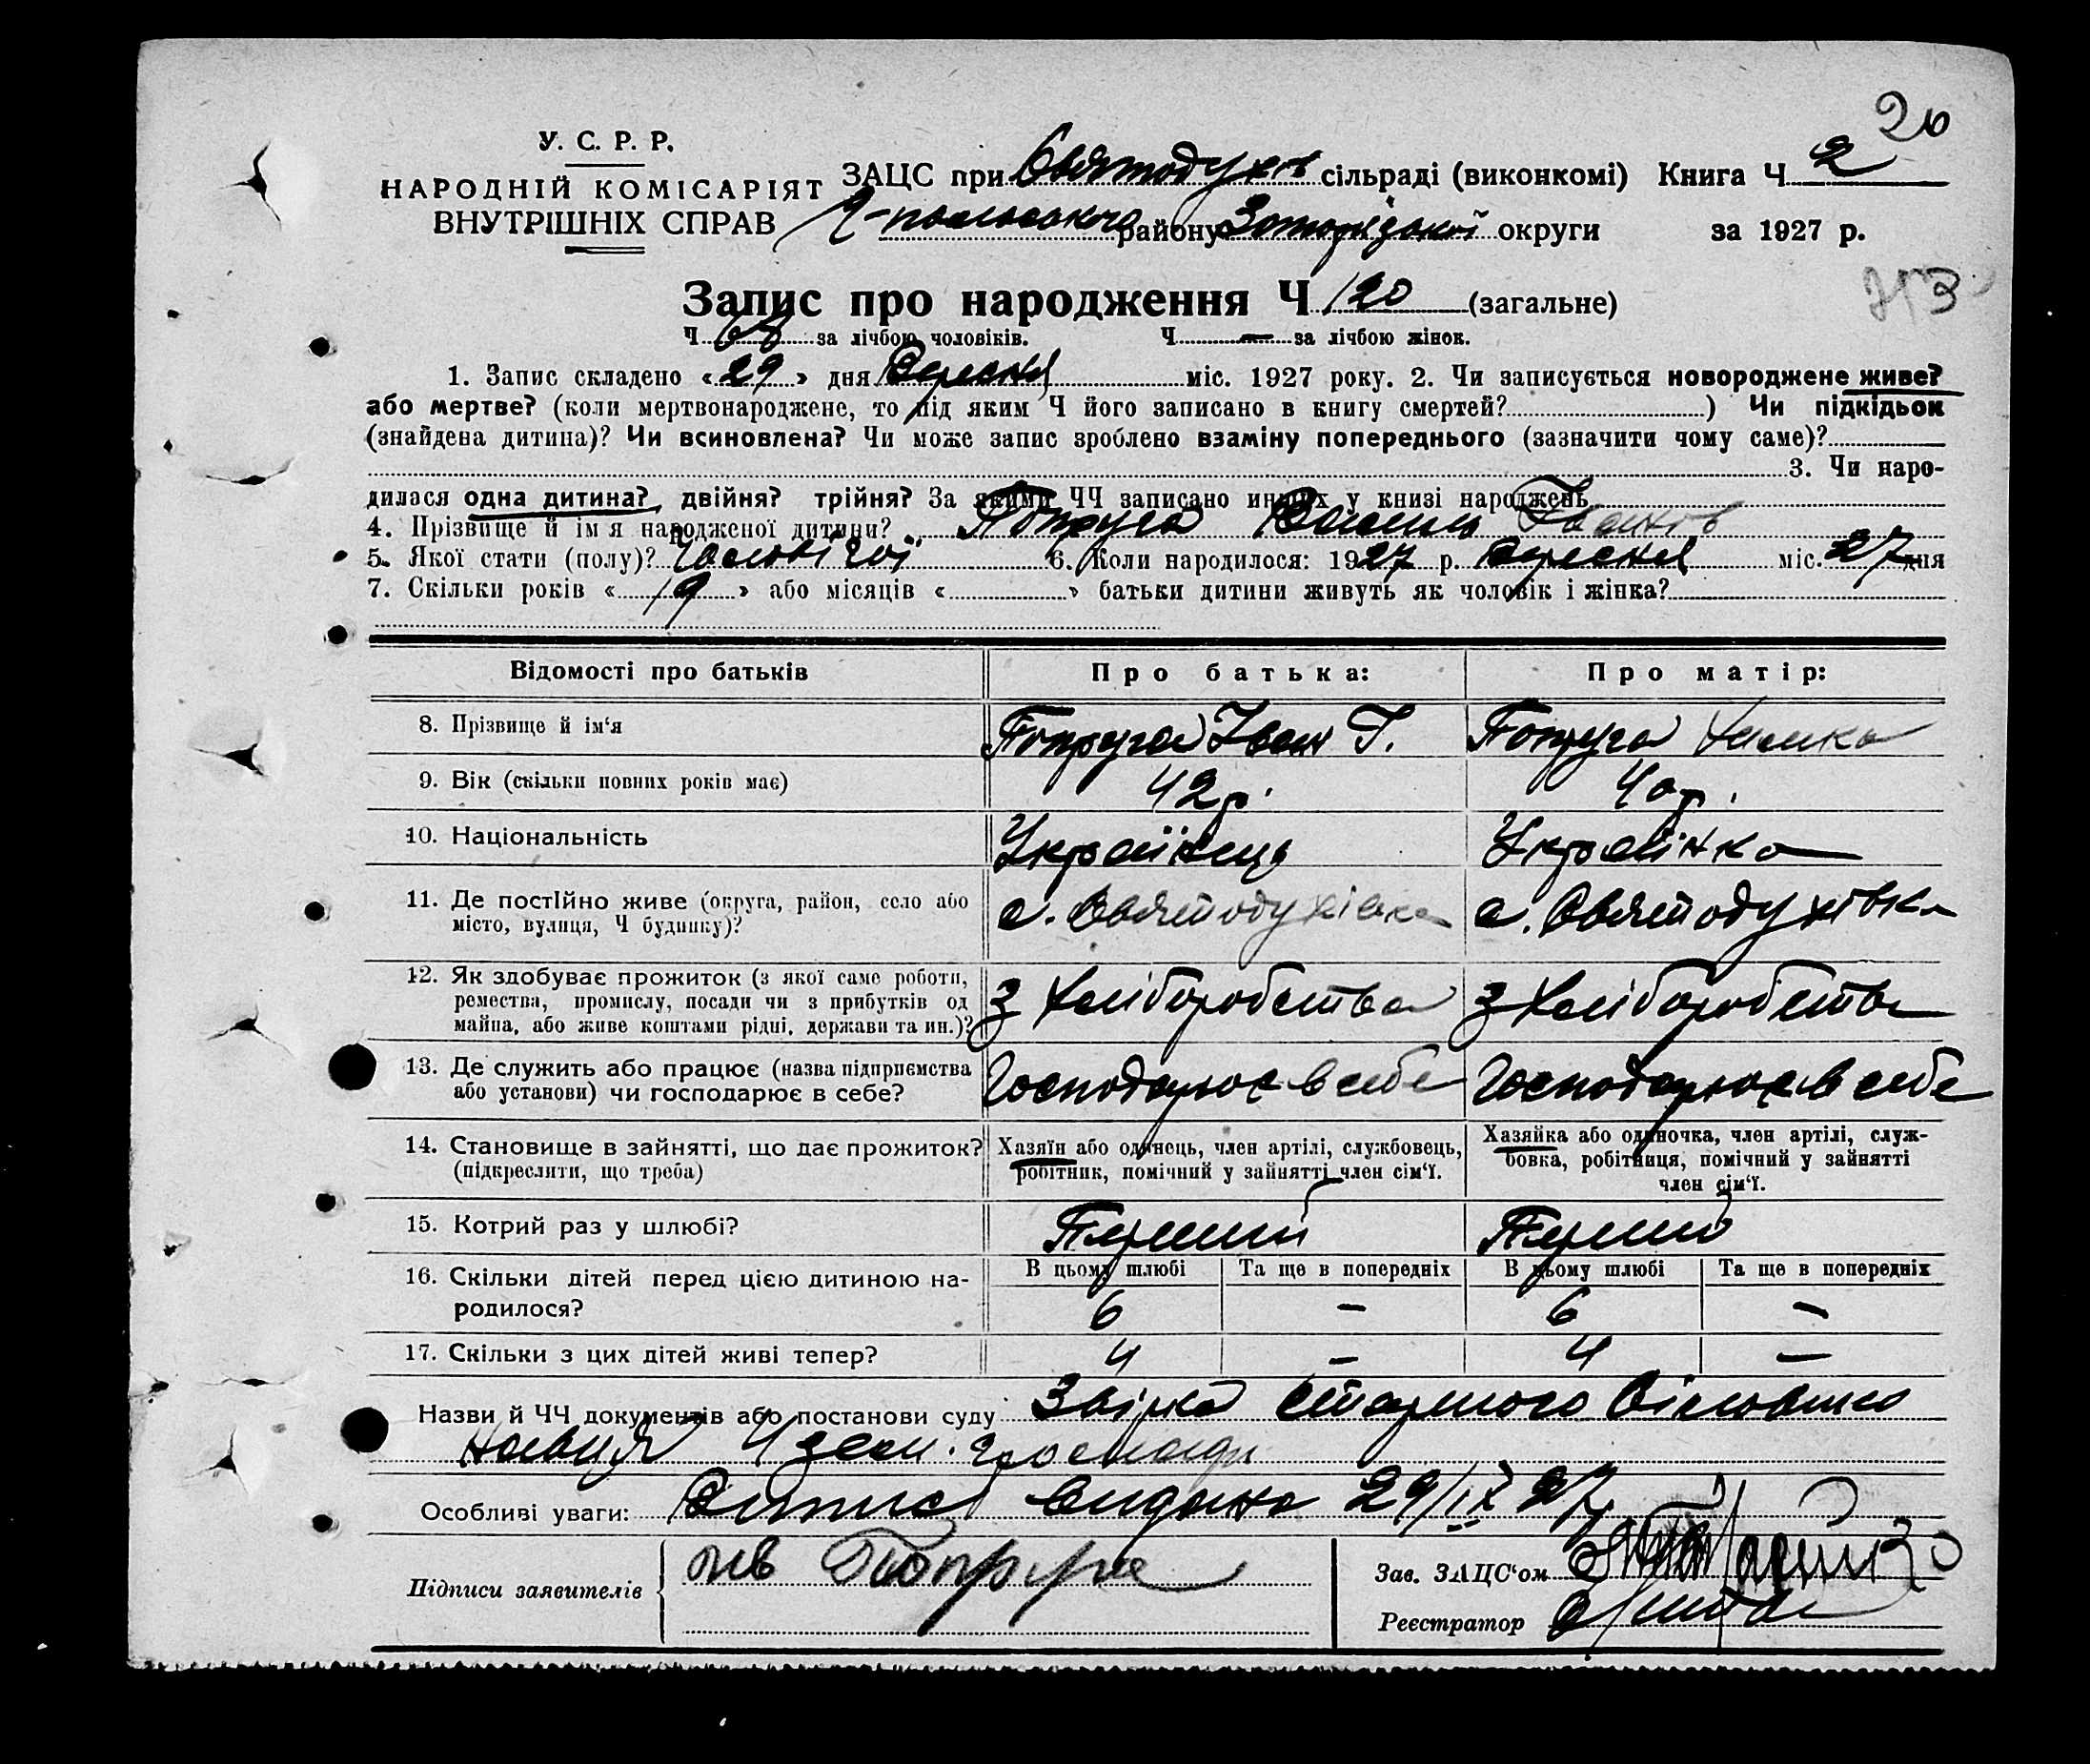 20
У. С. Р. Р.
НАРОДНІЙ КОМІСАРІЯТ
ВНУТРІШНІХ СПРАВ
ЗАЦС при Святодухів сільраді (виконкомі) Книга Ч 2
району Запорізької округи за 1927 р.
Запис про народження Ч 120 (загальне)
Ч за лічбою чоловіків. Ч — за лічбою жінок.
1. Запис складено « 29 » дня Вересня міс. 1927 року. 2. Чи записується новороджене живе?
або мертве? (коли мертвонароджене, то під яким Ч його записано в книгу смертей? ) Чи підкідьок
(знайдена дитина)? Чи всиновлена? Чи може запис зроблено взаміну попереднього (зазначити чому саме)?
3. Чи наро-
дилася одна дитина? двійня? трійня? За якими ЧЧ записано инших у книзі народжень
4. Прізвище й ім'я народженої дитини? Попруга Василь Іванів
5. Якої стати (полу)? Чоловічої 6. Коли народилося: 1927 р. Вересня міс. 27 дня
7. Скільки років « 19 » або місяців « » батьки дитини живуть як чоловік і жінка?
Відомості про батьків Про батька: Про матір:
8. Прізвище й ім'я Попруга Іван Г. Попруга
9. Вік (скільки повних років має) 42 р. 40 р.
10. Національність Українець Українка
11. Де постійно живе (округа, район, село або
місто, вулиця, Ч будинку)? с. Святодухівка с. Святодухівка
12. Як здобуває прожиток (з якої саме роботи,
ремества, промислу, посади чи з прибутків од
майна, або живе коштами рідні, держави та ин.)? З Хліборобства З Хліборобства
13. Де служить або працює (назва підприємства
або установи) чи господарює в себе? Господарює в себе Господарює в себе
14. Становище в зайнятті, що дає прожиток?
(підкреслити, що треба)
Хазяїн або одинець, член артілі, службовець,
робітник, помічний у зайнятті член сім'ї.
Хазяйка або одиночка, член артілі, служ-
бовка, робітниця, помічний у зайнятті
член сім'ї.
15. Котрий раз у шлюбі? Перший Перший
В цьому шлюбі Та ще в попередніх В цьому шлюбі Та ще в попередніх
16. Скільки дітей перед цією дитиною на-
родилося? 6 — 6 —
17. Скільки з цих дітей живі тепер? 4 — 4 —
Назви й ЧЧ документів або постанови суду
Ч зем. громади
Особливі уваги: Випис видано 29/IX 27
Підписи заявителів Попруга
Зав. ЗАЦС'ом
Реєстратор